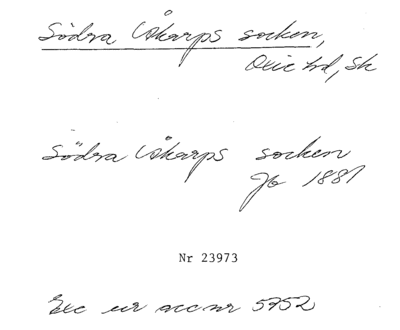 Södra Åkarps socken,
Oxie hd, Sk
Södra Åkarps socken
Jb 1881
Nr 23973
Exc ur acc nr 5752